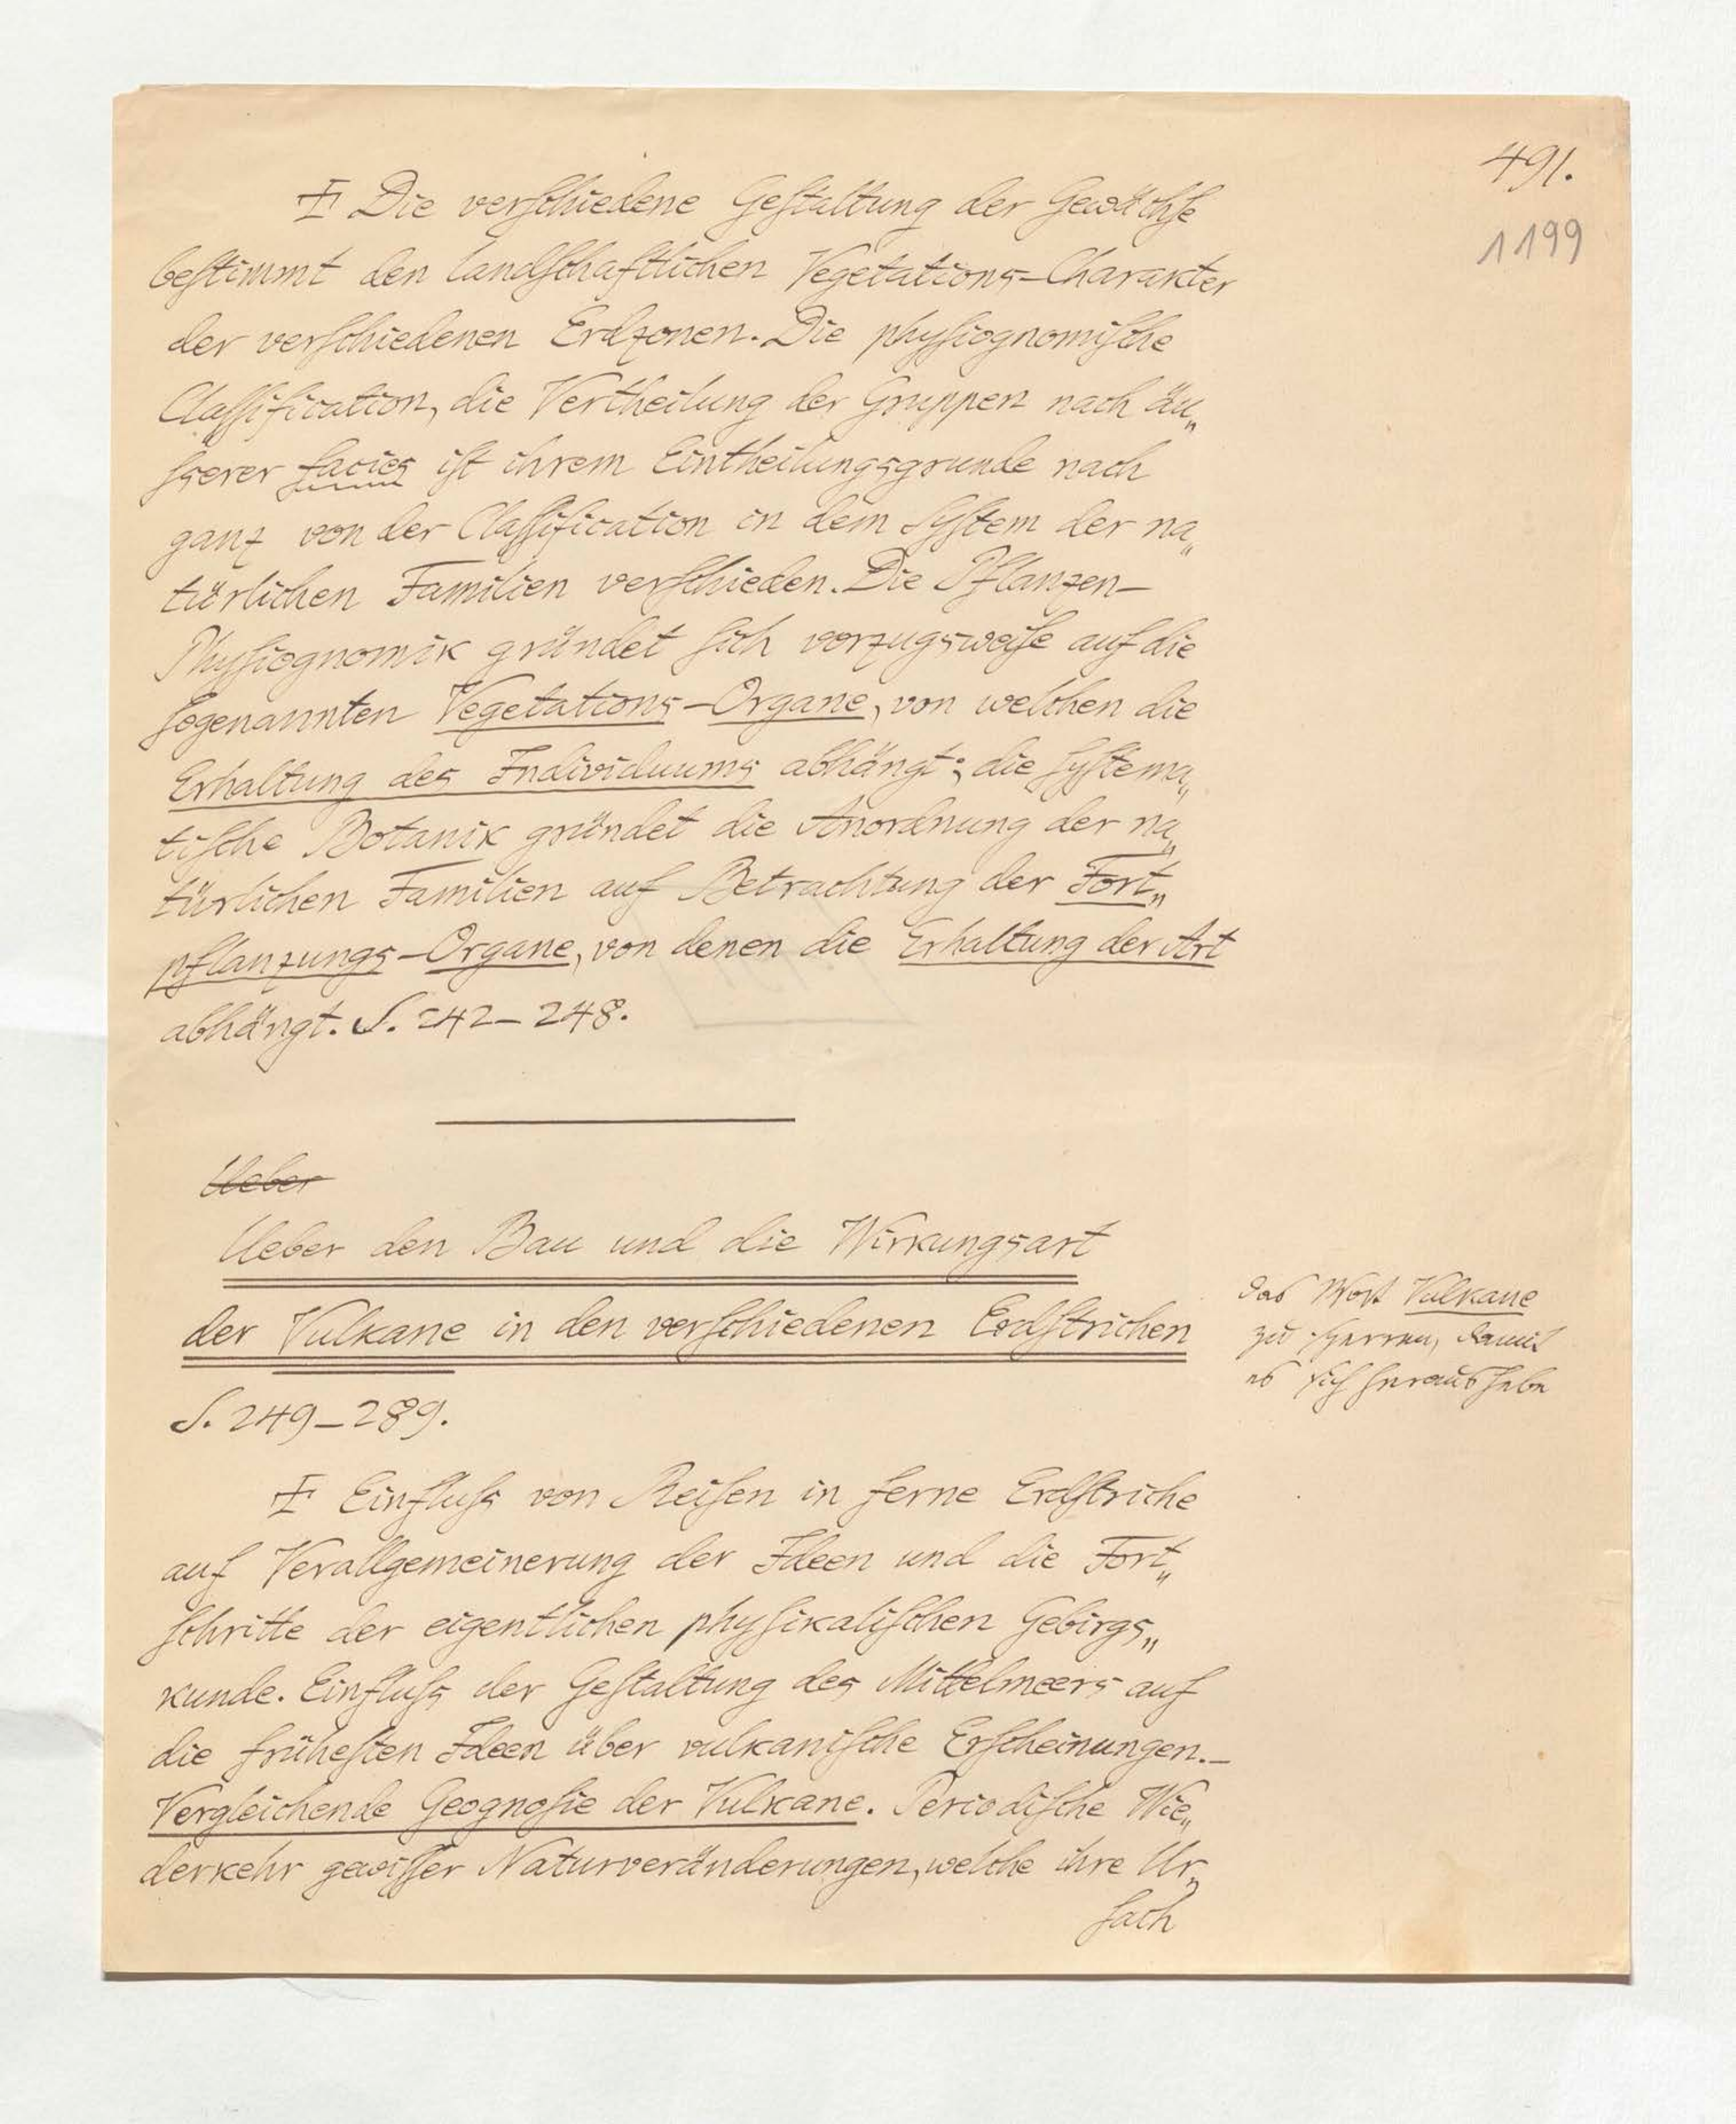 491.
1199
Die verschiedene Gestaltung der Gewächse
bestimmt den landschaftlichen Vegetations-Charakter
der verschiedenen Erdzonen. Die physiognomische
Classification, die Vertheilung der Gruppen nach äu„
sserer facies ist ihrem Eintheilungsgrunde nach
ganz von der Classification in dem System der na„
türlichen Familien verschieden. Die Pflanzen-
Physiognomik gründet sich vorzugsweise auf die
sogenannten Vegetations-Organe, von welchen die
Erhaltung des Individuums abhängt; die systema„
tische Botanik gründet die Anordnung der na„
türlichen Familien auf Betrachtung der Fort„
pflanzungs-Organe, von denen die Erhaltung der Art
abhängt. S. 242–248.
Ueber
Ueber den Bau und die Wirkungsart
der Vulkane in den verschiedenen Erdstrichen
das Wort Vulkane
zu sperren, damit
es sich heraushebe
S. 249–289.
Einfluss von Reisen in ferne Erdstriche
auf Verallgemeinerung der Ideen und die Fort„
schritte der eigentlichen physikalischen Gebirgs„
kunde. Einfluss der Gestaltung des Mittelmeers auf
die frühesten Ideen über vulkanische Erscheinungen.–
Vergleichende Geognosie der Vulkane. Periodische Wie„
derkehr gewisser Naturveränderungen, welche ihre Ur„
sach